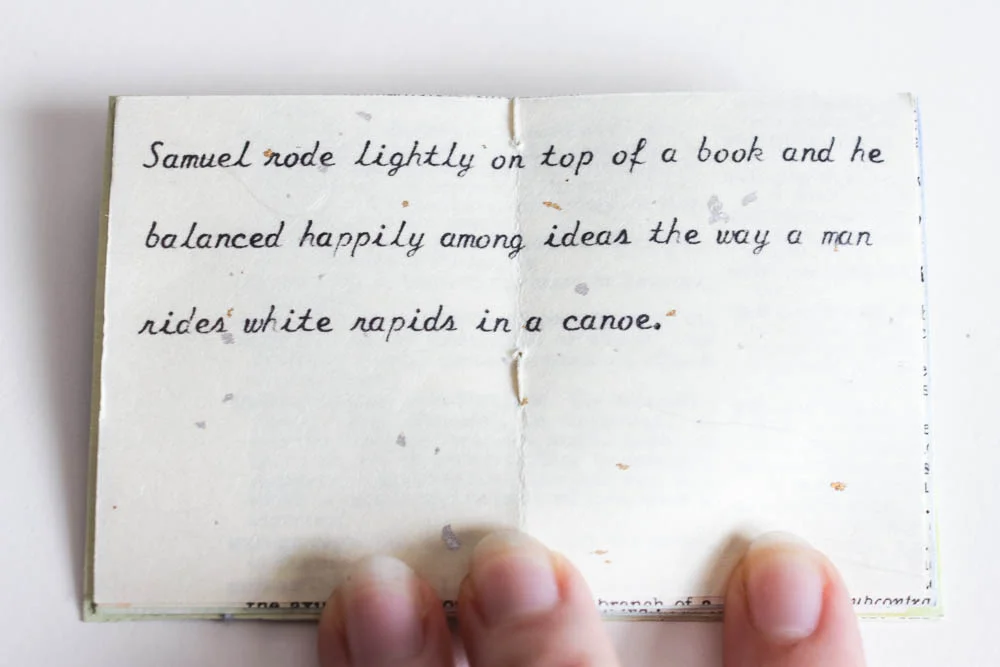 Samuel rode lightly on top of a book and he
balanced happily among ideas the way a man
rides white rapids in a canoe.
branch of a